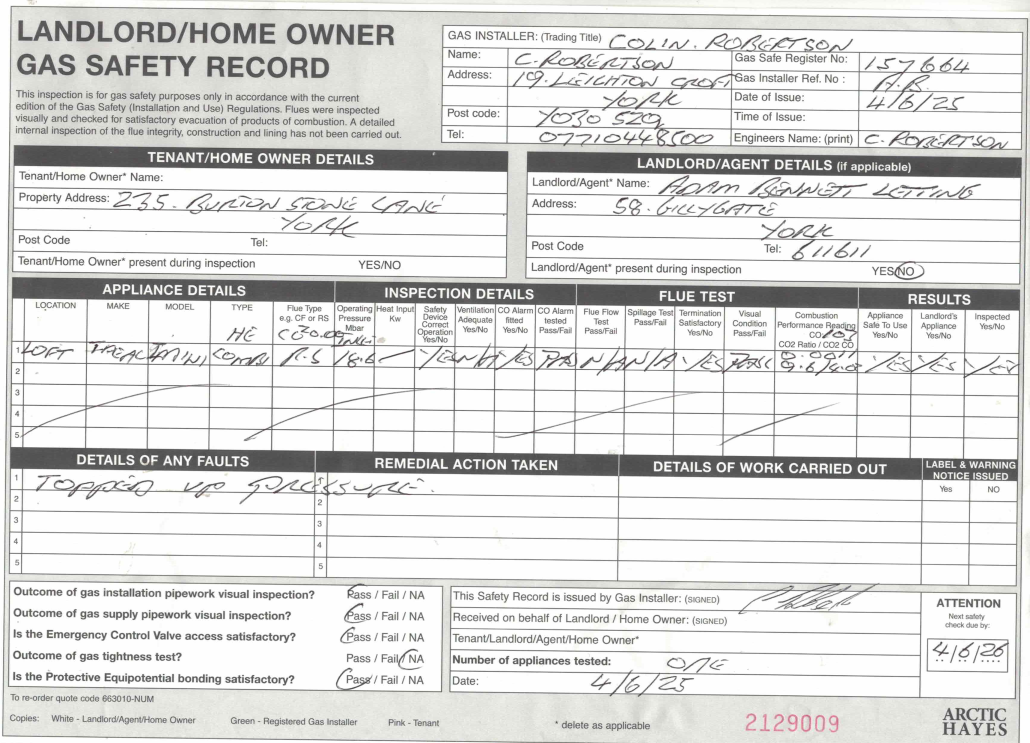 LANDLORD/HOME OWNER
GAS SAFETY RECORD
This inspection is for gas safety purposes only in accordance with the current
edition of the Gas Safety (Installation and Use) Regulations. Flues were inspected
visually and checked for satisfactory evacuation of products of combustion. A detailed
internal inspection of the flue integrity, construction and lining has not been carried out.
GAS INSTALLER: (Trading Title) COLIN. ROBERTSON
Name: C. ROBERTSON Gas Safe Register No: 157664
Address: 19. LEIGHTON CROFT Gas Installer Ref. No :
YORK Date of Issue: 4/6/25
Post code: YO30 5ZQ Time of Issue:
Tel: 07710448500 Engineers Name: (print) C. ROBERTSON
TENANT/HOME OWNER DETAILS
Tenant/Home Owner* Name:
Property Address: 235. BURTON STONE LANE
YORK
Post Code Tel:
Tenant/Home Owner* present during inspection YES/NO
LANDLORD/AGENT DETAILS (if applicable)
Landlord/Agent* Name: ADAM BENNETT LETTING
Address: 58. GILLYGATE
YORK
Post Code Tel: 611611
Landlord/Agent* present during inspection YES/NO
APPLIANCE DETAILS INSPECTION DETAILS FLUE TEST RESULTS
LOCATION MAKE MODEL TYPE Flue Type e.g. CF or RS Operating Pressure Mbar Heat Input Kw Safety Device Correct Operation Yes/No Ventilation Adequate Yes/No CO Alarm fitted Yes/No CO Alarm tested Pass/Fail Flue Flow Test Pass/Fail Spillage Test Pass/Fail Termination Satisfactory Yes/No Visual Condition Pass/Fail Combustion Performance Reading CO CO2 Ratio / CO2 CO Appliance Safe To Use Yes/No Landlord's Appliance Yes/No Inspected Yes/No
HE
1 LOFT MINI COMBI R.S 18.6 YES N/A YES PASS N/A N/A YES PASS YES YES YES
2
3
4
5
DETAILS OF ANY FAULTS REMEDIAL ACTION TAKEN DETAILS OF WORK CARRIED OUT LABEL & WARNING NOTICE ISSUED
Yes NO
1 TOPPED UP PRESSURE.
2 2
3 3
4 4
5 5
Outcome of gas installation pipework visual inspection? Pass / Fail / NA
Outcome of gas supply pipework visual inspection? Pass / Fail / NA
Is the Emergency Control Valve access satisfactory? Pass / Fail / NA
Outcome of gas tightness test? Pass / Fail / NA
Is the Protective Equipotential bonding satisfactory? Pass / Fail / NA
This Safety Record is issued by Gas Installer: (SIGNED)
Received on behalf of Landlord / Home Owner: (SIGNED)
Tenant/Landlord/Agent/Home Owner*
Number of appliances tested: ONE
Date: 4/6/25
ATTENTION
Next safety
check due by:
4/6/26
To re-order quote code 663010-NUM
Copies: White - Landlord/Agent/Home Owner Green - Registered Gas Installer Pink - Tenant * delete as applicable 2129009
ARCTIC
HAYES